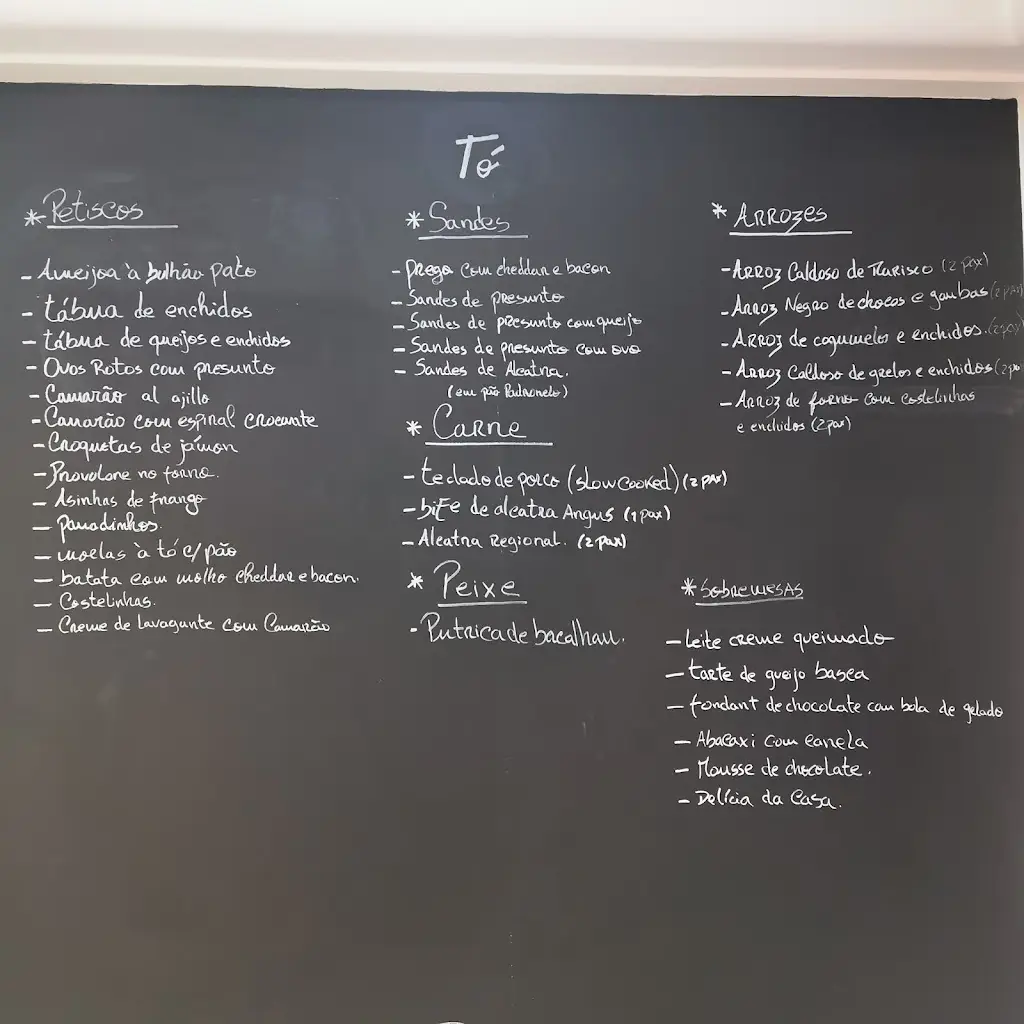 Tó
* Petiscos
- Ameijoa à bulhão pato
- tábua de enchidos
- tábua de queijos e enchidos
- Ovos Rotos com presunto
- Camarão al ajillo
- Camarão com espiral crocante
- Croquetas de jámon
- Provolone no forno.
- Asinhas de frango
- panadinhos.
- moelas à tó c/ pão
- batata com molho cheddar e bacon.
- Costelinhas.
- Creme de lavagante com Camarão
* Sandes
- prego com cheddar e bacon
- Sandes de presunto
- Sandes de presunto com queijo
- Sandes de presunto com ovo
- Sandes de Alcatra.
(em pão Padronelo)
* Carne
- teclado de porco (slow cooked) (2 pax)
- bife de alcatra Angus (1 pax)
- Alcatra Regional. (2 pax)
* Peixe
- Punheta de bacalhau.
* Arrozes
- Arroz Caldoso de Marisco (2 pax)
- Arroz Negro de chocos e gambas (2 pax)
- Arroz de cogumelos e enchidos. (2 pax)
- Arroz Caldoso de grelos e enchidos (2 pa
- Arroz de forno com costelinhas
e enchidos (2 pax)
* Sobremesas
- leite creme queimado
- tarte de queijo basca
- fondant de chocolate com bola de gelado
- Abacaxi com canela
- Mousse de chocolate.
- Delícia da Casa.